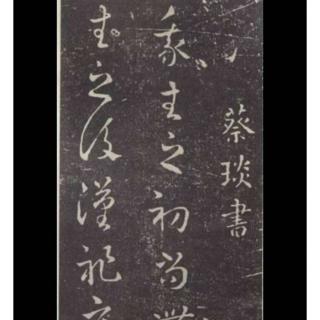 蔡琰書
我生之初尚無
我生之後漢祚衰